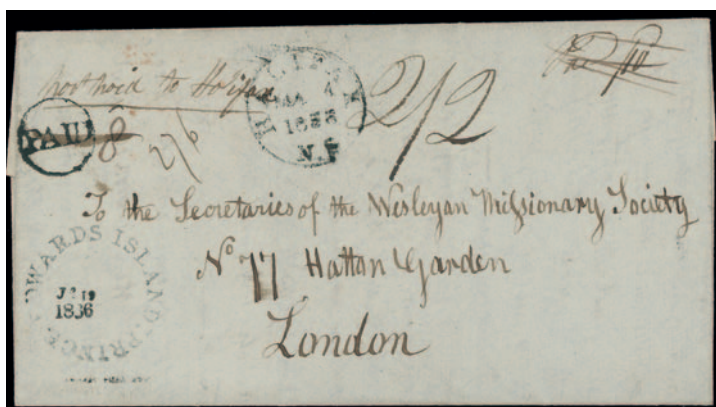 Post paid to Halifax
HALIFAX
1836
N.S
2/2
PAID
8
2/6
To the Secretaries of the Wesleyan Missionary Society
No 77 Hatton Garden
PRINCE EDWARDS ISLAND
19
1836
London